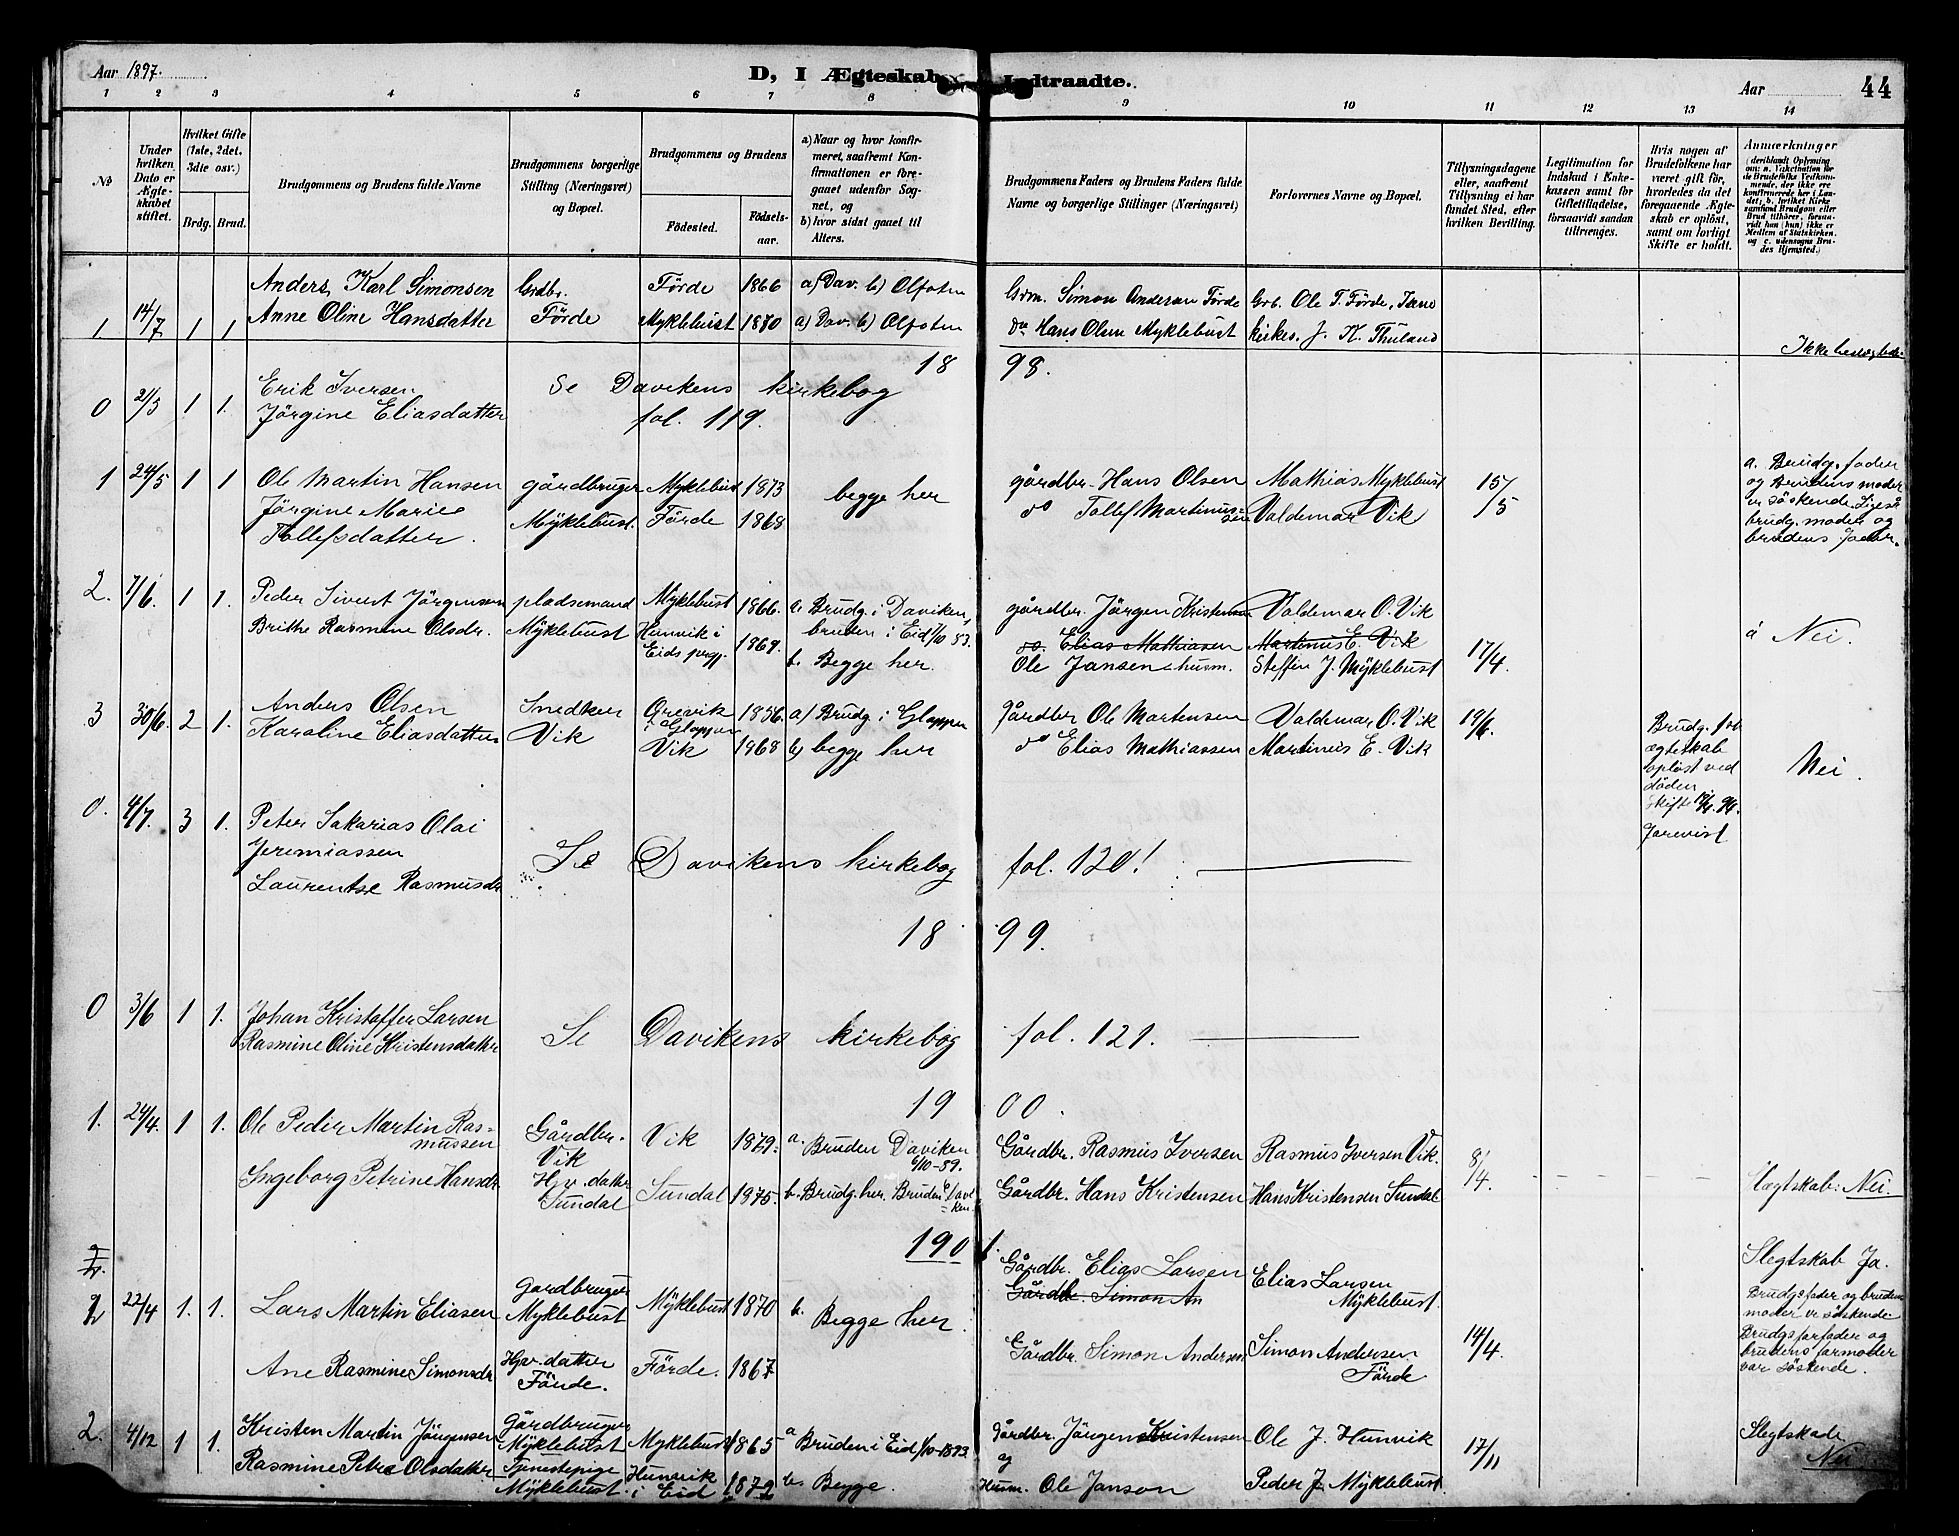 Aar 1897.
D, I Ægteskab Indtraadte.
Aar
44
1 2 3 4 5 6 7 8 9 10 11 12 13 14
No
Under hvilken Dato er Ægteskabet stiftet.
Hvilket Gifte (1ste, 2det, 3die osv.)
Brdg. Brud.
Brudgommens og Brudens fulde Navne
Brudgommens borgerlige Stilling (Næringsvei) og Bopæl.
Brudgommens og Brudens
Fødested.
Fødselsaar.
a) Naar og hvor konfirmeret, saafremt Konfirmationen er foregaaet udenfor Sognet, og
b) hvor sidst gaaet til Alters.
Brudgommens Faders og Brudens Faders fulde Navne og borgerlige Stillinger (Næringsvei)
Forlovernes Navne og Bopæl.
Tillysningsdagene eller, saafremt Tillysning ei har fundet Sted, efter hvilken Bevilling.
Legitimation for Indskud i Enkekassen samt for Giftetilladelse, forsaavidt saadan tiltrænges.
Hvis nogen af Brudefolkene har været gift før, hvorledes da det foregaaende Ægteskab er opløst, samt om lovligt Skifte er holdt.
Anmærkninger
(deriblandt Oplysning om: a. Vakcination for de Brudefolks Vedkommende, der ikke ere konfirmerede her i Landet; b. hvilket Kirkesamfund Brudgom eller Brud tilhører, forsavidt han (hun) ikke er Medlem af Statskirken, og c. udensogns Brudes Hjemsted.)
Anders Karl Simonsen Grdbr. Førde 1866 a) Dav. b) Olfoten Grm. Simon Andersen Førde Grb. Ole T. Førde,
1. 14/7 1 1 Anne Oline Hansdatter Førde Myklebust 1870 a) Dav. b) Olfoten do Hans Olsen Myklebust Kirkes. J. K. Thuland
Ikke
1898.
0 2/5 1 1. Erik Iversen Se Davikens kirkebog
Jørgine Eliasdatter fol. 119.
1 24/5 1 1 Ole Martin Hansen gårdbruger Myklebust 1873 begge her gårdbr. Hans Olsen Mathias Myklebust 15/5
Jørgine Marie Myklebust. Førde 1868 do Tollef Martinussen Valdemar Vik
Tollefsdatter.
a. Brudg. fader
og Brudens moder
er søskende. Ligeså
brudg. moder og
brudens fader.
2. 7/6. 1 1. Peder Sivert Jørgensen pladsemand Myklebust 1866. a. Brudg. i Daviken, gårdbr. Jørgen Kristensen Valdemar O. Vik
Brithe Rasmine Olsdr. Myklebust Hunvik i 1869. bruden i Eid 7/10 83. do. Elias Mathiassen Martinus E. Vik
Eids prgj. b. Begge her. Ole Jansen husm. Steffen J. Myklebust 17/4
á Nei.
3 30/6. 2 1. Anders Olsen Snedker Grevik 1856. a) Brudg. i Gloppen gårdbr Ole Martensen Valdemar O. Vik 19/6.
i Gloppen
Karoline Eliasdatter Vik Vik 1968 b) begge her do Elias Mathiassen Martinus E. Vik
Brudg. for.
ægteskab
opløst ved
døden.
Skifte
Nei.
0. 4/7. 3 1. Peter Sakarias Olai
Jeremiassen Se Davikens kirkebog fol. 120!
Laurentse Rasmusdr
1899.
0 3/6 1 1. Johan Kristoffer Larsen
Rasmine Oline Kristensdatter Se Davikens kirkebog fol. 121.
1900.
1. 24/4. 1 1. Ole Peder Martin Rasmussen Gårdbr. Vik Vik 1879. a. Bruden Daviken 6/10-89. Gårdbr. Rasmus Iversen Rasmus Iversen Vik. 8/4.
Ingeborg Petrine Hansdr Hjv. datter Sundal Sundal 1875. b. Brudg. her. Bruden i Daviken. Gårdbr. Hans Kristensen Hans Kristensen Sundal
Slægtskab: Nei.
1901.
2 22/4 1. 1. Lars Martin Eliasen Gardbruger Myklebust Myklebust 1870 b. Begge her. Gårdbr. Elias Larsen Elias Larsen Myklebust.
Gårdbr. Simon An
Ane Rasmine Simonsdr Hjv. datter Førde. Førde. 1867 Gårdbr. Simon Andersen Simon Andersen Førde 14/4.
Slegtskab Ja.
Brudgs fader og brudens
moder er søskende
Brudgs farfader og
brudens farmoder
var søskende.
2. 4/12 1 1. Kristen Martin Jörgensen Gårdbruger Myklebust Myklebust 1865 a Bruden i Eid 1/10-1893. Gårdbr. Jörgen Kristensen Ole J. Hunvik 17/11
og
Rasmine Petra Olsdatter Tjenestepige Myklebust. Hunvik i Eid 1872 b. Begge. Husm. Ole Janson Peder J. Myklebust.
Slegtskab.
Nei